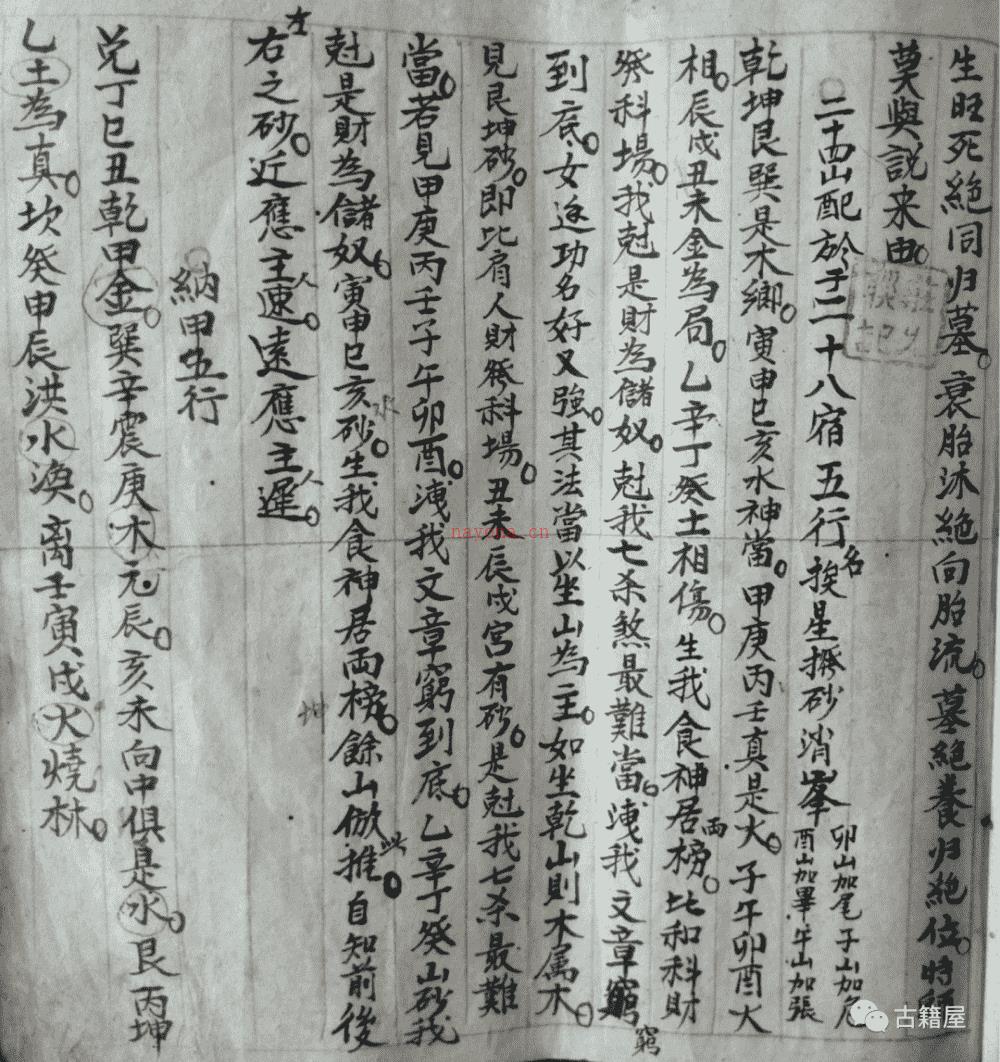 生旺死絕同归墓。衰胎沐絕向胎流。墓絕養归絕位。時師
莫與說来由。
二十四山配於于二十八宿五行挨星撥砂消峯 卯山加尾子山加危
名
酉山加畢午山加張
乾坤艮巽是木鄉。寅申巳亥水神當。甲庚丙壬真是火。子午卯酉火
相。辰戌丑未金為局。乙辛丁癸土相傷。生我食神居兩榜。比和科財
發科場。我尅是財為儲奴。尅我七杀煞最難當。洩我文章窮
窮
到底。女逐功名好又強。其法當以坐山為主。如坐乾山則木属木。
見艮坤砂。即比肩人財發科場。丑未辰戌宮有砂。是尅我七杀最難
當。若見甲庚丙壬子午卯酉。洩我文章窮到底。乙辛丁癸山砂我
尅是財為儲奴。寅申巳亥水砂。生我食神居兩榜。餘山倣此推。自知前後
左右之砂。近應主人速。遠應主人遲。
納甲五行
兌丁巳丑乾甲金。巽辛震庚木元辰。亥未向中俱是水。艮丙坤
乙土為真。坎癸申辰洪水渙。离壬寅戌火燒林。
nayona.cn
古籍屋